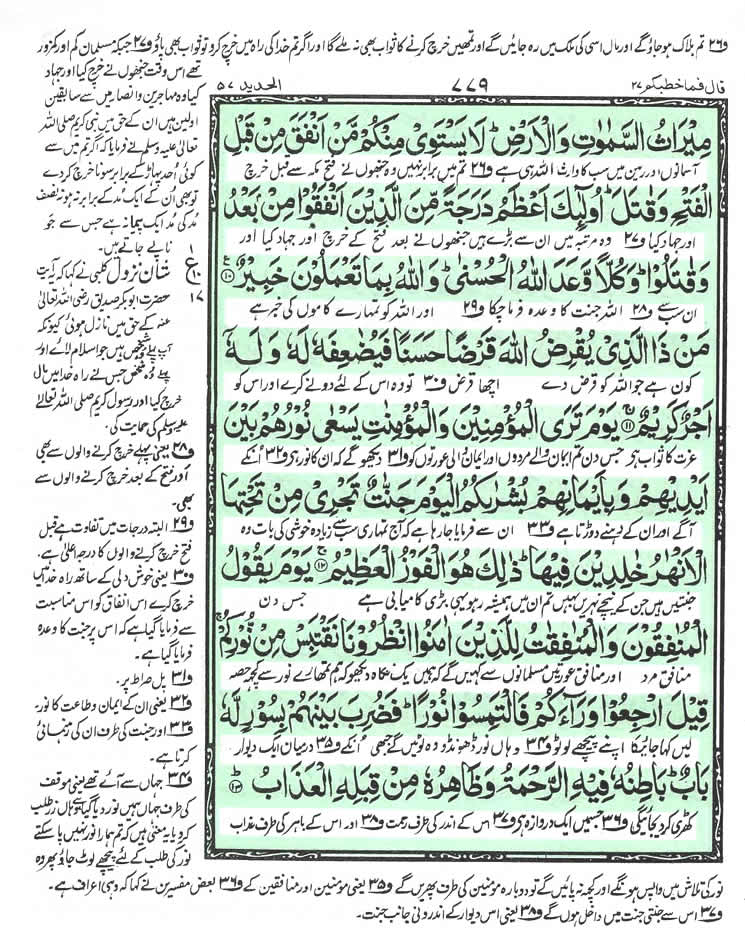 و۲۶ تم ہلاک ہوجاؤ گے اور مال اسی کی ملک میں رہ جائیں گے اور تمھیں خرچ کرنے کا ثواب بھی نہ ملے گا اور اگر تم خدا کی راہ میں خرچ کرو تو ثواب بھی پاؤ و۲۷ جبکہ مسلمان کم اور کمزور
تھے اس وقت جنھوں نے خرچ کیا اور جہاد
کیا وہ مہاجرین و انصار میں سے سابقین
اولین ہیں ان کے حق میں نبی کریم صلی اللہ
تعالیٰ علیہ وسلم نے فرمایا کہ اگر تم میں سے
کوئی اُحد پہاڑ کے برابر سونا خرچ کردے
تو بھی ان کے ایک مُد کے برابر نہ ہو نہ نصف
مُد کی مُد ایک پیمانہ ہے جس سے جَو
ناپے جاتے ہیں۔
شانِ نزول کلبی نے کہا کہ یہ آیت
حضرت ابوبکر صدیق رضی اللہ تعالیٰ
عنہ کے حق میں نازل ہوئی کیونکہ
آپ پہلے شخص ہیں جو اسلام لائے اور
پہلے وہ شخص جس نے راہ خدا میں مال
خرچ کیا اور رسول کریم صلی اللہ تعالیٰ
علیہ وسلم کی حمایت کی۔
و۲۸ یعنی پہلے خرچ کرنے والوں سے بھی
اور فتح کے بعد خرچ کرنے والوں سے
بھی۔
و۲۹ البتہ درجات میں تفاوت ہے قبل
فتح خرچ کرنے والوں کا درجہ اعلیٰ ہے۔
و۳۰ یعنی خوش دلی کے ساتھ راہ خدا میں
خرچ کرے اس انفاق کو اس مناسبت
سے فرمایا گیا ہے کہ اس پر جنت کا وعدہ
فرمایا گیا ہے۔
و۳۱ پل صراط پر۔
و۳۲ یعنی ان کے ایمان و طاعت کا نور۔
و۳۳ اور جنت کی طرف ان کی رہنمائی
کرتا ہے۔
و۳۴ جہاں سے آئے تھے یعنی موقف
کی طرف جہاں ہمیں نور دیا گیا تو وہاں نور طلب
کرو یا یہ معنی ہیں کہ تم ہمارا نور نہیں پا سکتے
نور کی طلب کے لئے پیچھے لوٹ جاؤ پھر وہ
قال فما خطبكم ۲۷
۷۷۹
الحديد ۵۷
مِيْرَاثُ السَّمٰوٰتِ وَالْاَرْضِ ؕ لَا يَسْتَوِيْ مِنْكُمْ مَّنْ اَنْفَقَ مِنْ قَبْلِ
آسمانوں اور زمین میں سب کا وارث اللہ ہی ہے و۲۶ تم میں برابر نہیں وہ جنھوں نے فتح مکہ سے قبل خرچ
الْفَتْحِ وَقٰتَلَ ؕ اُولٰٓئِكَ اَعْظَمُ دَرَجَةً مِّنَ الَّذِيْنَ اَنْفَقُوْا مِنْ بَعْدُ
اور جہاد کیا و۲۷ وہ مرتبہ میں ان سے بڑے ہیں جنھوں نے بعد فتح کے خرچ اور جہاد کیا اور
وَقٰتَلُوْا ؕ وَكُلًّا وَّعَدَ اللّٰهُ الْحُسْنٰى ؕ وَاللّٰهُ بِمَا تَعْمَلُوْنَ خَبِيْرٌ ۱۰
ان سب سے و۲۸ اللہ جنت کا وعدہ فرما چکا و۲۹ اور اللہ کو تمہارے کاموں کی خبر ہے
ع
۱
۱۰
۱۷
مَنْ ذَا الَّذِيْ يُقْرِضُ اللّٰهَ قَرْضًا حَسَنًا فَيُضٰعِفَهٗ لَهٗ وَلَهٗٓ
کون ہے جو اللہ کو قرض دے اچھا قرض و۳۰ تو وہ اس کے لئے دونے کرے اور اس کو
اَجْرٌ كَرِيْمٌ ۱۱ يَوْمَ تَرَى الْمُؤْمِنِيْنَ وَالْمُؤْمِنٰتِ يَسْعٰى نُوْرُهُمْ بَيْنَ
عزت کا ثواب ہے جس دن تم ایمان والے مردوں اور ایمان والی عورتوں کو و۳۱ دیکھو گے کہ ان کا نور ہے و۳۲ انکے
اَيْدِيْهِمْ وَبِاَيْمَانِهِمْ بُشْرٰىكُمُ الْيَوْمَ جَنّٰتٌ تَجْرِيْ مِنْ تَحْتِهَا
آگے اور ان کے دہنے دوڑتا ہے و۳۳ ان سے فرمایا جارہا ہے کہ آج تمہاری سب سے زیادہ خوشی کی بات وہ
الْاَنْهٰرُ خٰلِدِيْنَ فِيْهَا ؕ ذٰلِكَ هُوَ الْفَوْزُ الْعَظِيْمُ ۱۲ يَوْمَ يَقُوْلُ
جنتیں ہیں جن کے نیچے نہریں بہیں تم ان میں ہمیشہ رہو یہی بڑی کامیابی ہے جس دن
الْمُنٰفِقُوْنَ وَالْمُنٰفِقٰتُ لِلَّذِيْنَ اٰمَنُوا انْظُرُوْنَا نَقْتَبِسْ مِنْ نُّوْرِكُمْ
منافق مرد اور منافق عورتیں مسلمانوں سے کہیں گے کہ ہمیں یک نگاہ دیکھو کہ ہم تمہارے نور سے کچھ حصہ
قِيْلَ ارْجِعُوْا وَرَآءَكُمْ فَالْتَمِسُوْا نُوْرًا ؕ فَضُرِبَ بَيْنَهُمْ بِسُوْرٍ لَّهٗ
لیں کہا جائیگا اپنے پیچھے لوٹو و۳۴ وہاں نور ڈھونڈو وہ لوٹیں گے جبھی انکے و۳۵ درمیان ایک دیوار
بَابٌ ؕ بَاطِنُهٗ فِيْهِ الرَّحْمَةُ وَظَاهِرُهٗ مِنْ قِبَلِهِ الْعَذَابُ ۱۳
کھڑی کردیجائیگی و۳۶ جسمیں ایک دروازہ ہے و۳۷ اس کے اندر کی طرف رحمت و۳۸ اور اس کے باہر کی طرف عذاب
نور کی تلاش میں واپس ہونگے اور کچھ نہ پائیں گے تو دوبارہ مومنین کی طرف پھریں گے و۳۵ یعنی مومنین اور منافقین کے و۳۶ بعض مفسرین نے کہا کہ وہی اعراف ہے۔
و۳۷ اس سے جنتی جنت میں داخل ہوں گے و۳۸ یعنی اس دیوار کے اندرونی جانب جنت۔